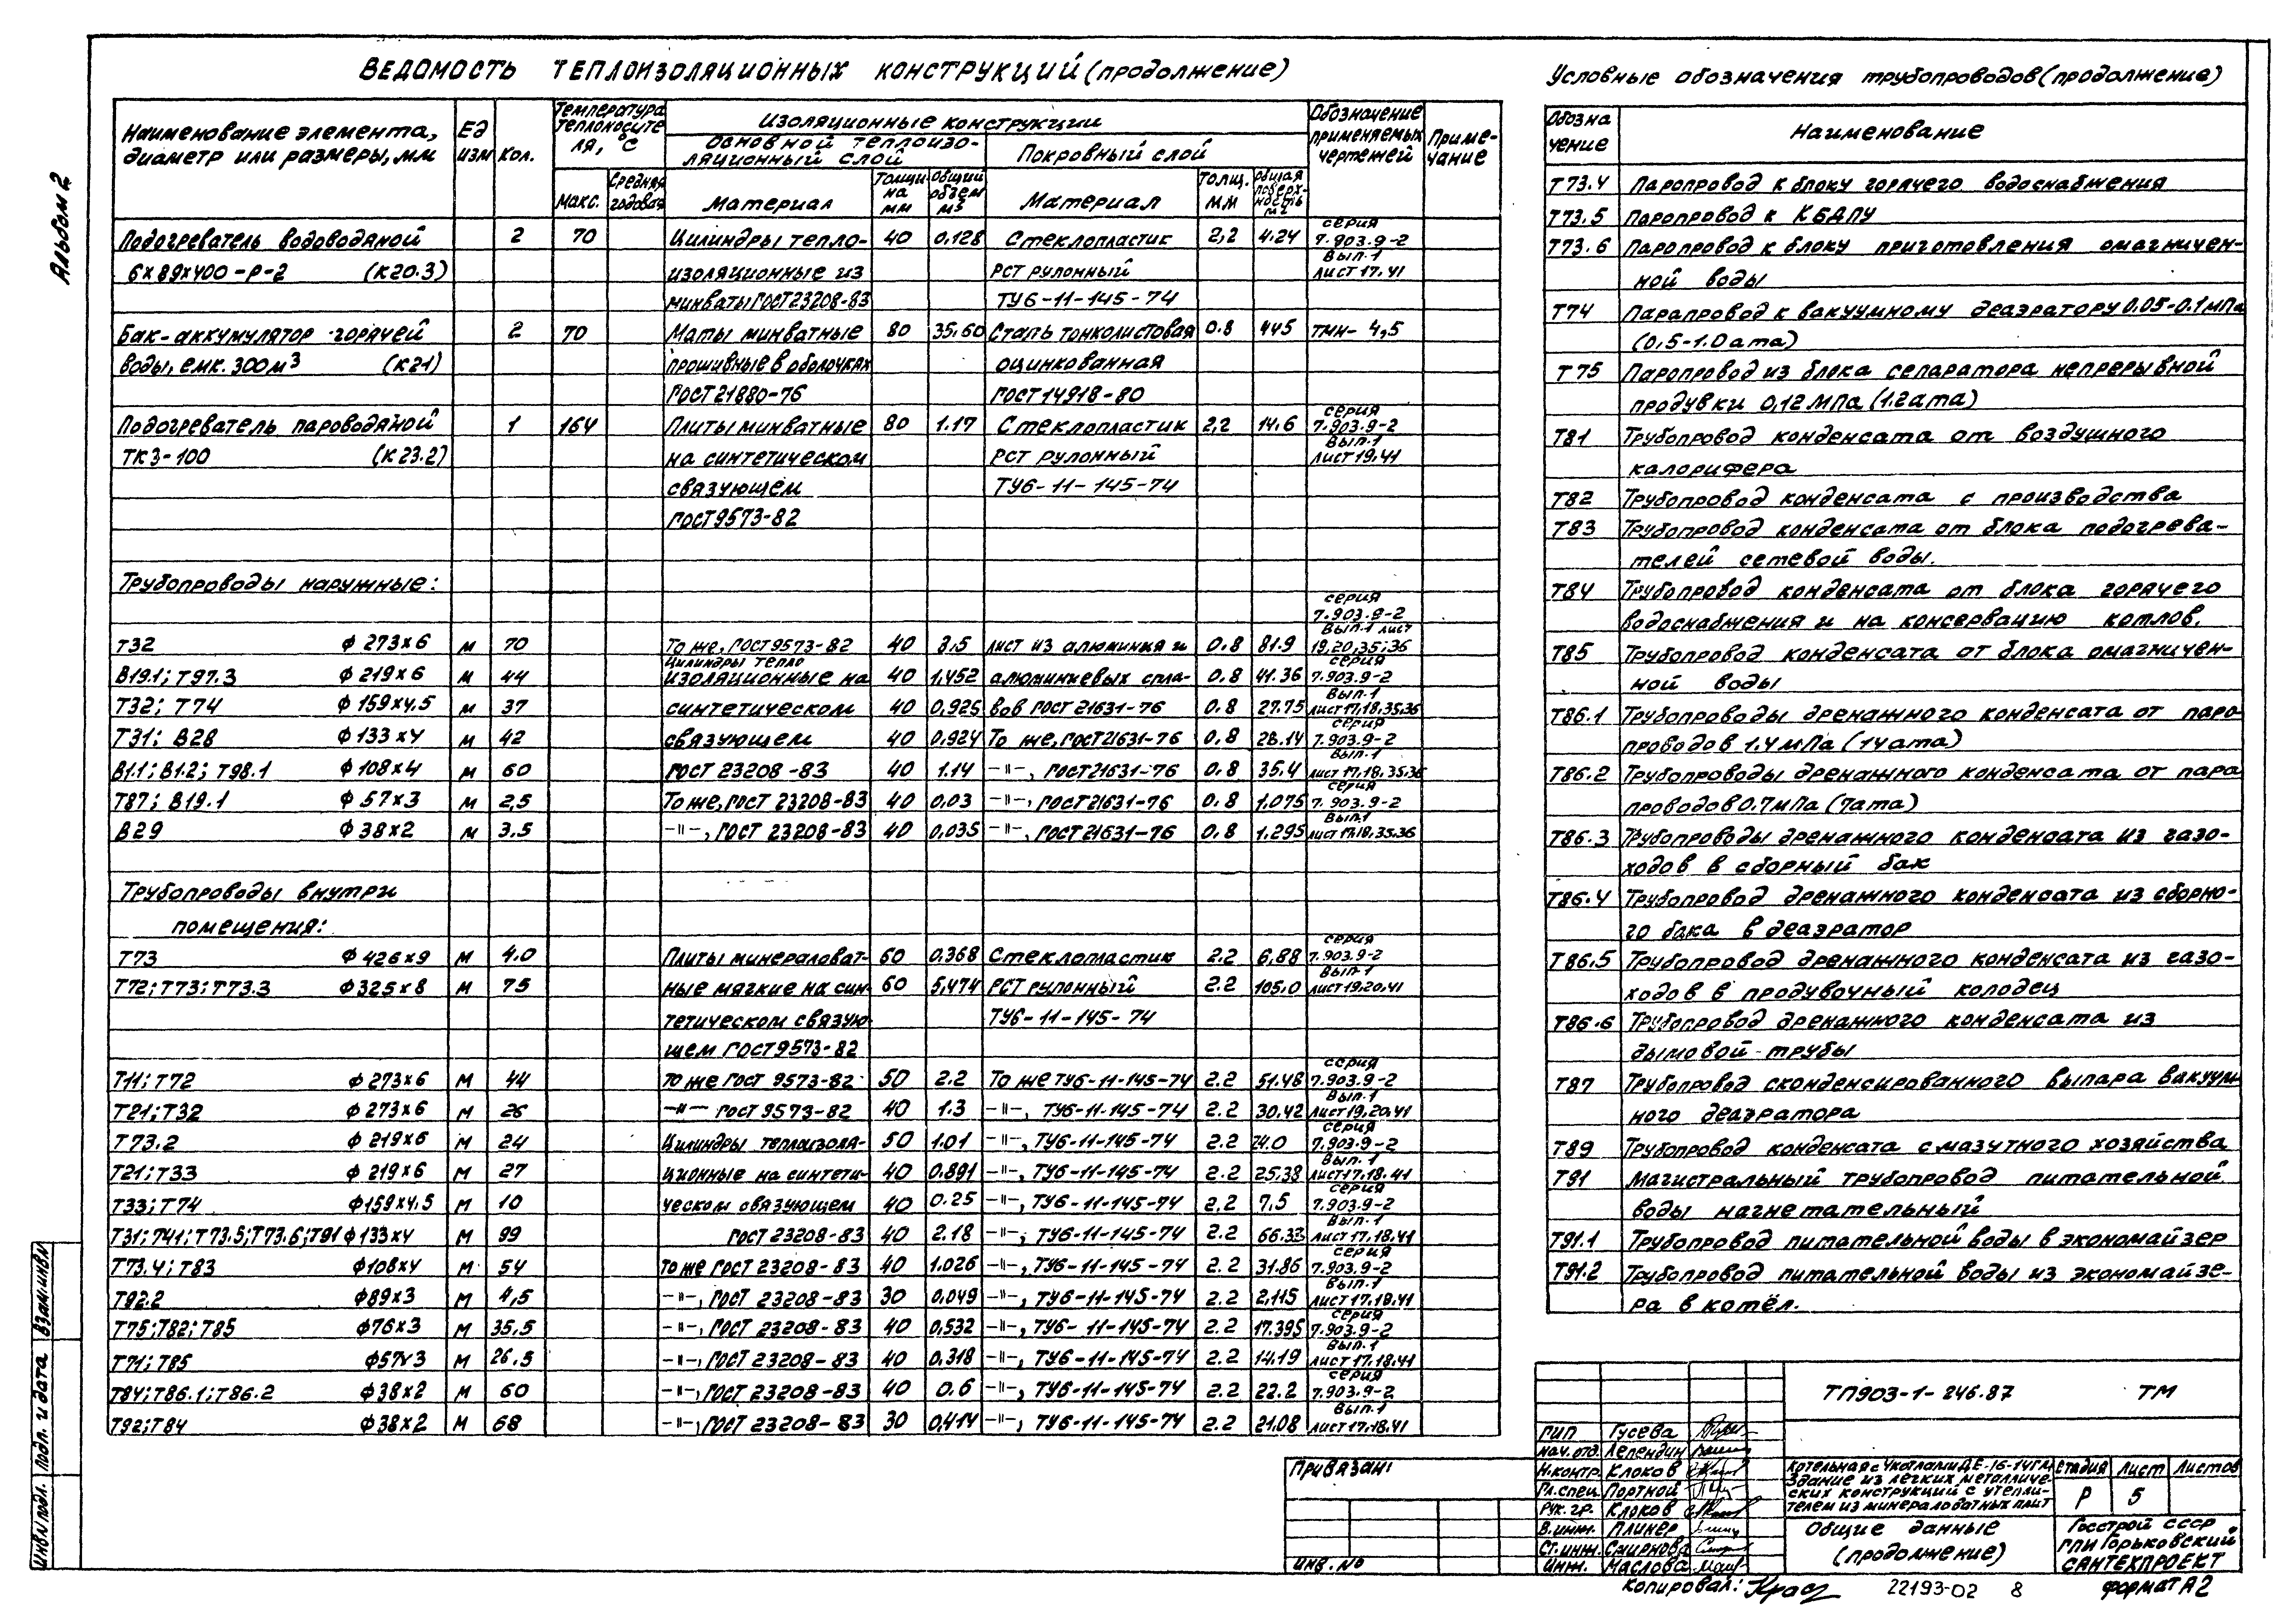 Альбом 2
Ведомость теплоизоляционных конструкций (продолжение)
Наименование элемента, диаметр или размеры, мм | Ед изм | Кол. | Температура теплоносителя, °С | Изоляционные конструкции | Обозначение применяемых чертежей | Примечание
Основной теплоизоляционный слой | Покровный слой
макс. | Средняя годовая | Материал | Толщина мм | Общий объем м3 | Материал | Толщ. мм | Общая поверхность м2
Подогреватель водоводяной | 2 | 70 | Цилиндры тепло- | 40 | 0,128 | Стеклопластик | 2,2 | 4.24 | серия 7.903.9-2
6х89х400-Р-2 (К20.3) | изоляционные из | РСТ рулонный | Вып.1 лист 17,41
минваты ГОСТ 23208-83 | ТУ6-11-145-74
Бак-аккумулятор горячей | 2 | 70 | Маты минватные | 80 | 35,60 | Сталь тонколистовая | 0.8 | 445 | ТМН-4,5
воды, емк. 300м3 (К21) | прошивные в оболочках | оцинкованная
ГОСТ 21880-76 | ГОСТ 14918-80
Подогреватель пароводяной | 1 | 164 | Плиты минватные | 80 | 1.17 | Стеклопластик | 2,2 | 14.6 | серия 7.903.9-2
ТКЗ-100 (К23.2) | на синтетическом | РСТ рулонный | Вып.1 лист 19,41
связующем | ТУ6-11-145-74
ГОСТ 9573-82
Трубопроводы наружные:
серия 7.903.9-2
Т32 ф 273х6 | м | 70 | То же, ГОСТ 9573-82 | 40 | 3,5 | лист из алюминия и | 0.8 | 81.9 | Вып.1 лист 19,20,35;36
В19.1; Т97.3 ф 219х6 | м | 44 | Цилиндры тепло изоляционные на | 40 | 1,452 | алюминиевых спла- | 0.8 | 41.36 | серия 7.903.9-2
Т32; Т74 ф 159х4,5 | м | 37 | синтетическом | 40 | 0,925 | вов ГОСТ 21631-76 | 0.8 | 27.75 | Вып.1 лист 17,18,35,36
Т31; В28 ф 133х4 | м | 42 | связующем | 40 | 0.924 | То же, ГОСТ 21631-76 | 0,8 | 28.14 | серия 7.903.9-2
В1.1; В1.2; Т98.1 ф 108х4 | м | 60 | ГОСТ 23208-83 | 40 | 1.14 | -"-, ГОСТ 21631-76 | 0.8 | 35.4 | Вып.1 лист 17,18,35,36
Т87; В19.1 ф 57х3 | м | 2,5 | То же, ГОСТ 23208-83 | 40 | 0,03 | -"-, ГОСТ 21631-76 | 0.8 | 1.075 | серия 7.903.9-2
В29 ф 38х2 | м | 3.5 | -"-, ГОСТ 23208-83 | 40 | 0,035 | -"-, ГОСТ 21631-76 | 0.8 | 1.295 | Вып.1 лист 17,18,35,36
Трубопроводы внутри
помещения:
Т73 ф 426х9 | м | 4.0 | Плиты минераловат- | 60 | 0.368 | Стеклопластик | 2.2 | 6,88 | серия 7.903.9-2
Т72; Т73; Т73.3 ф 325х8 | м | 75 | ные мягкие на син- | 60 | 5,474 | РСТ рулонный | 2.2 | 105,0 | Вып.1 лист 19,20,41
тетическом связую- | ТУ6-11-145-74
щем ГОСТ 9573-82
Т11; Т72 ф 273х6 | м | 44 | то же ГОСТ 9573-82 | 50 | 2.2 | То же ТУ6-11-145-74 | 2.2 | 51.48 | серия 7.903.9-2
Т21; Т32 ф 273х6 | м | 26 | -"- ГОСТ 9573-82 | 40 | 1.3 | -"-, ТУ6-11-145-74 | 2.2 | 30.42 | Вып.1 лист 19,20,41
Т73.2 ф 219х6 | м | 24 | Цилиндры теплоизоля- | 50 | 1.01 | -"-, ТУ6-11-145-74 | 2.2 | 24.0 | серия 7.903.9-2
Т21; Т33 ф 219х6 | м | 27 | ционные на синтети- | 40 | 0.891 | -"-, ТУ6-11-145-74 | 2.2 | 25.38 | Вып.1 лист 17,18,41
Т33; Т74 ф 159х4,5 | м | 10 | ческом связующем | 40 | 0.25 | -"-, ТУ6-11-145-74 | 2,2 | 7,5 | серия 7.903.9-2
Т31; Т41; Т73.5; Т73.6; Т91 ф 133х4 | м | 99 | ГОСТ 23208-83 | 40 | 2.18 | -"-, ТУ6-11-145-74 | 2.2 | 66.33 | Вып.1 лист 17,18,41
Т73.4; Т83 ф 108х4 | м | 54 | то же ГОСТ 23208-83 | 40 | 1.026 | -"-, ТУ6-11-145-74 | 2.2 | 31.86 | серия 7.903.9-2
Т92.2 ф 89х3 | м | 4,5 | -"-, ГОСТ 23208-83 | 30 | 0,049 | -"-, ТУ6-11-145-74 | 2.2 | 2.115 | Вып.1 лист 17,18,41
Т75; Т82; Т85 ф 76х3 | м | 35,5 | -"-, ГОСТ 23208-83 | 40 | 0,532 | -"-, ТУ6-11-145-74 | 2.2 | 17.395 | серия 7.903.9-2
Т71; Т85 ф 57х3 | м | 26.5 | -"-, ГОСТ 23208-83 | 40 | 0,318 | -"-, ТУ6-11-145-74 | 2.2 | 14.19 | Вып.1 лист 17,18,41
Т84; Т86.1; Т86.2 ф 38х2 | м | 60 | -"-, ГОСТ 23208-83 | 40 | 0.6 | -"-, ТУ6-11-145-74 | 2.2 | 22.2 | серия 7.903.9-2
Т92; Т84 ф 38х2 | м | 68 | -"-, ГОСТ 23208-83 | 30 | 0,414 | -"-, ТУ6-11-145-74 | 2.2 | 21.08 | Вып.1 лист 17,18,41
Условные обозначения трубопроводов (продолжение)
Обозначение | Наименование
Т73.4 Паропровод к блоку горячего водоснабжения
Т73.5 Паропровод к КБДПУ
Т73.6 Паропровод к блоку приготовления омагничен-
ной воды
Т74 Паропровод к вакуумному деаэратору 0.05-0.1МПа
(0,5-1.0ата)
Т75 Паропровод из блока сепаратора непрерывной
продувки 0,12МПа (1.2ата)
Т81 Трубопровод конденсата от воздушного
калорифера
Т82 Трубопровод конденсата с производства
Т83 Трубопровод конденсата от блока подогрева-
телей сетевой воды.
Т84 Трубопровод конденсата от блока горячего
водоснабжения и на консервацию котлов.
Т85 Трубопровод конденсата от блока омагничен-
ной воды
Т86.1 Трубопроводы дренажного конденсата от паро-
проводов 1.4МПа (14ата)
Т86.2 Трубопроводы дренажного конденсата от паро
проводов 0.7МПа (7ата)
Т86.3 Трубопроводы дренажного конденсата из газо-
ходов в сборный бак
Т86.4 Трубопровод дренажного конденсата из сборно-
го бака в деаэратор
Т86.5 Трубопровод дренажного конденсата из газо-
ходов в продувочный колодец
Т86.6 Трубопровод дренажного конденсата из
дымовой трубы
Т87 Трубопровод сконденсированного выпара вакуум
ного деаэратора
Т89 Трубопровод конденсата с мазутного хозяйства
Т91 Магистральный трубопровод питательной
воды нагнетательный
Т91.1 Трубопровод питательной воды в экономайзер
Т91.2 Трубопровод питательной воды из экономайзе-
ра в котёл.
ТП903-1-246.87 ТМ
ГИП Гусева
Нач. отд. Лепендин
Н.контр. Клоков
Гл.спец. Портной
Рук. гр. Клоков
В.инж. Плинер
Ст.инж. Смирнова
Инж. Маслова
Котельная с 4 котлами ДЕ-16-14ГМ
Здание из легких металличе-
ских конструкций с утепли-
телем из минераловатных плит
Стадия Лист Листов
Р 5
Общие данные
(продолжение)
Госстрой СССР
ГПИ Горьковский
САНТЕХПРОЕКТ
Привязан:
Инв. №
Инв N подл. Подп. и дата Взам.инв N
Копировал: 22193-02 8 Формат А2